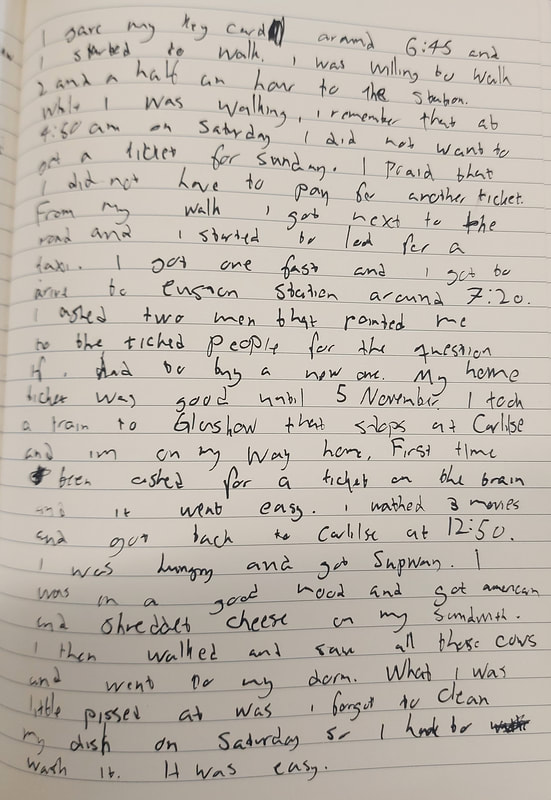 I gave my key card around 6:45 and
I started to walk. I was willing to walk
2 and a half an hour to the station.
While I was walking, I remember that at
4:50 am on Saturday I did not want to
get a ticket for Sunday. I praid that
I did not have to pay for another ticket.
From my walk I got next to the
road and I started to look for a
taxi. I got one fast and I got to
arive to Euston station around 7:20.
I asked two men that pointed me
to the ticked people for the question
if I had to buy a new one. My home
ticket was good until 5 November. I took
a train to Glasshow that stops at Carlilse
and im on my way home. First time
been asked for a ticket on the train
and it went easy. I wathed 3 movies
and got back to Carlilse at 12:50.
I was hungry and got Supway. I
was in a good mood and got american
and shreddet cheese on my sandwith.
I then walked and saw all these cows
and went to my dorm. What I was
little pissed at was I forgot to clean
my dish on Saturday so I had to
wash it. It was easy.